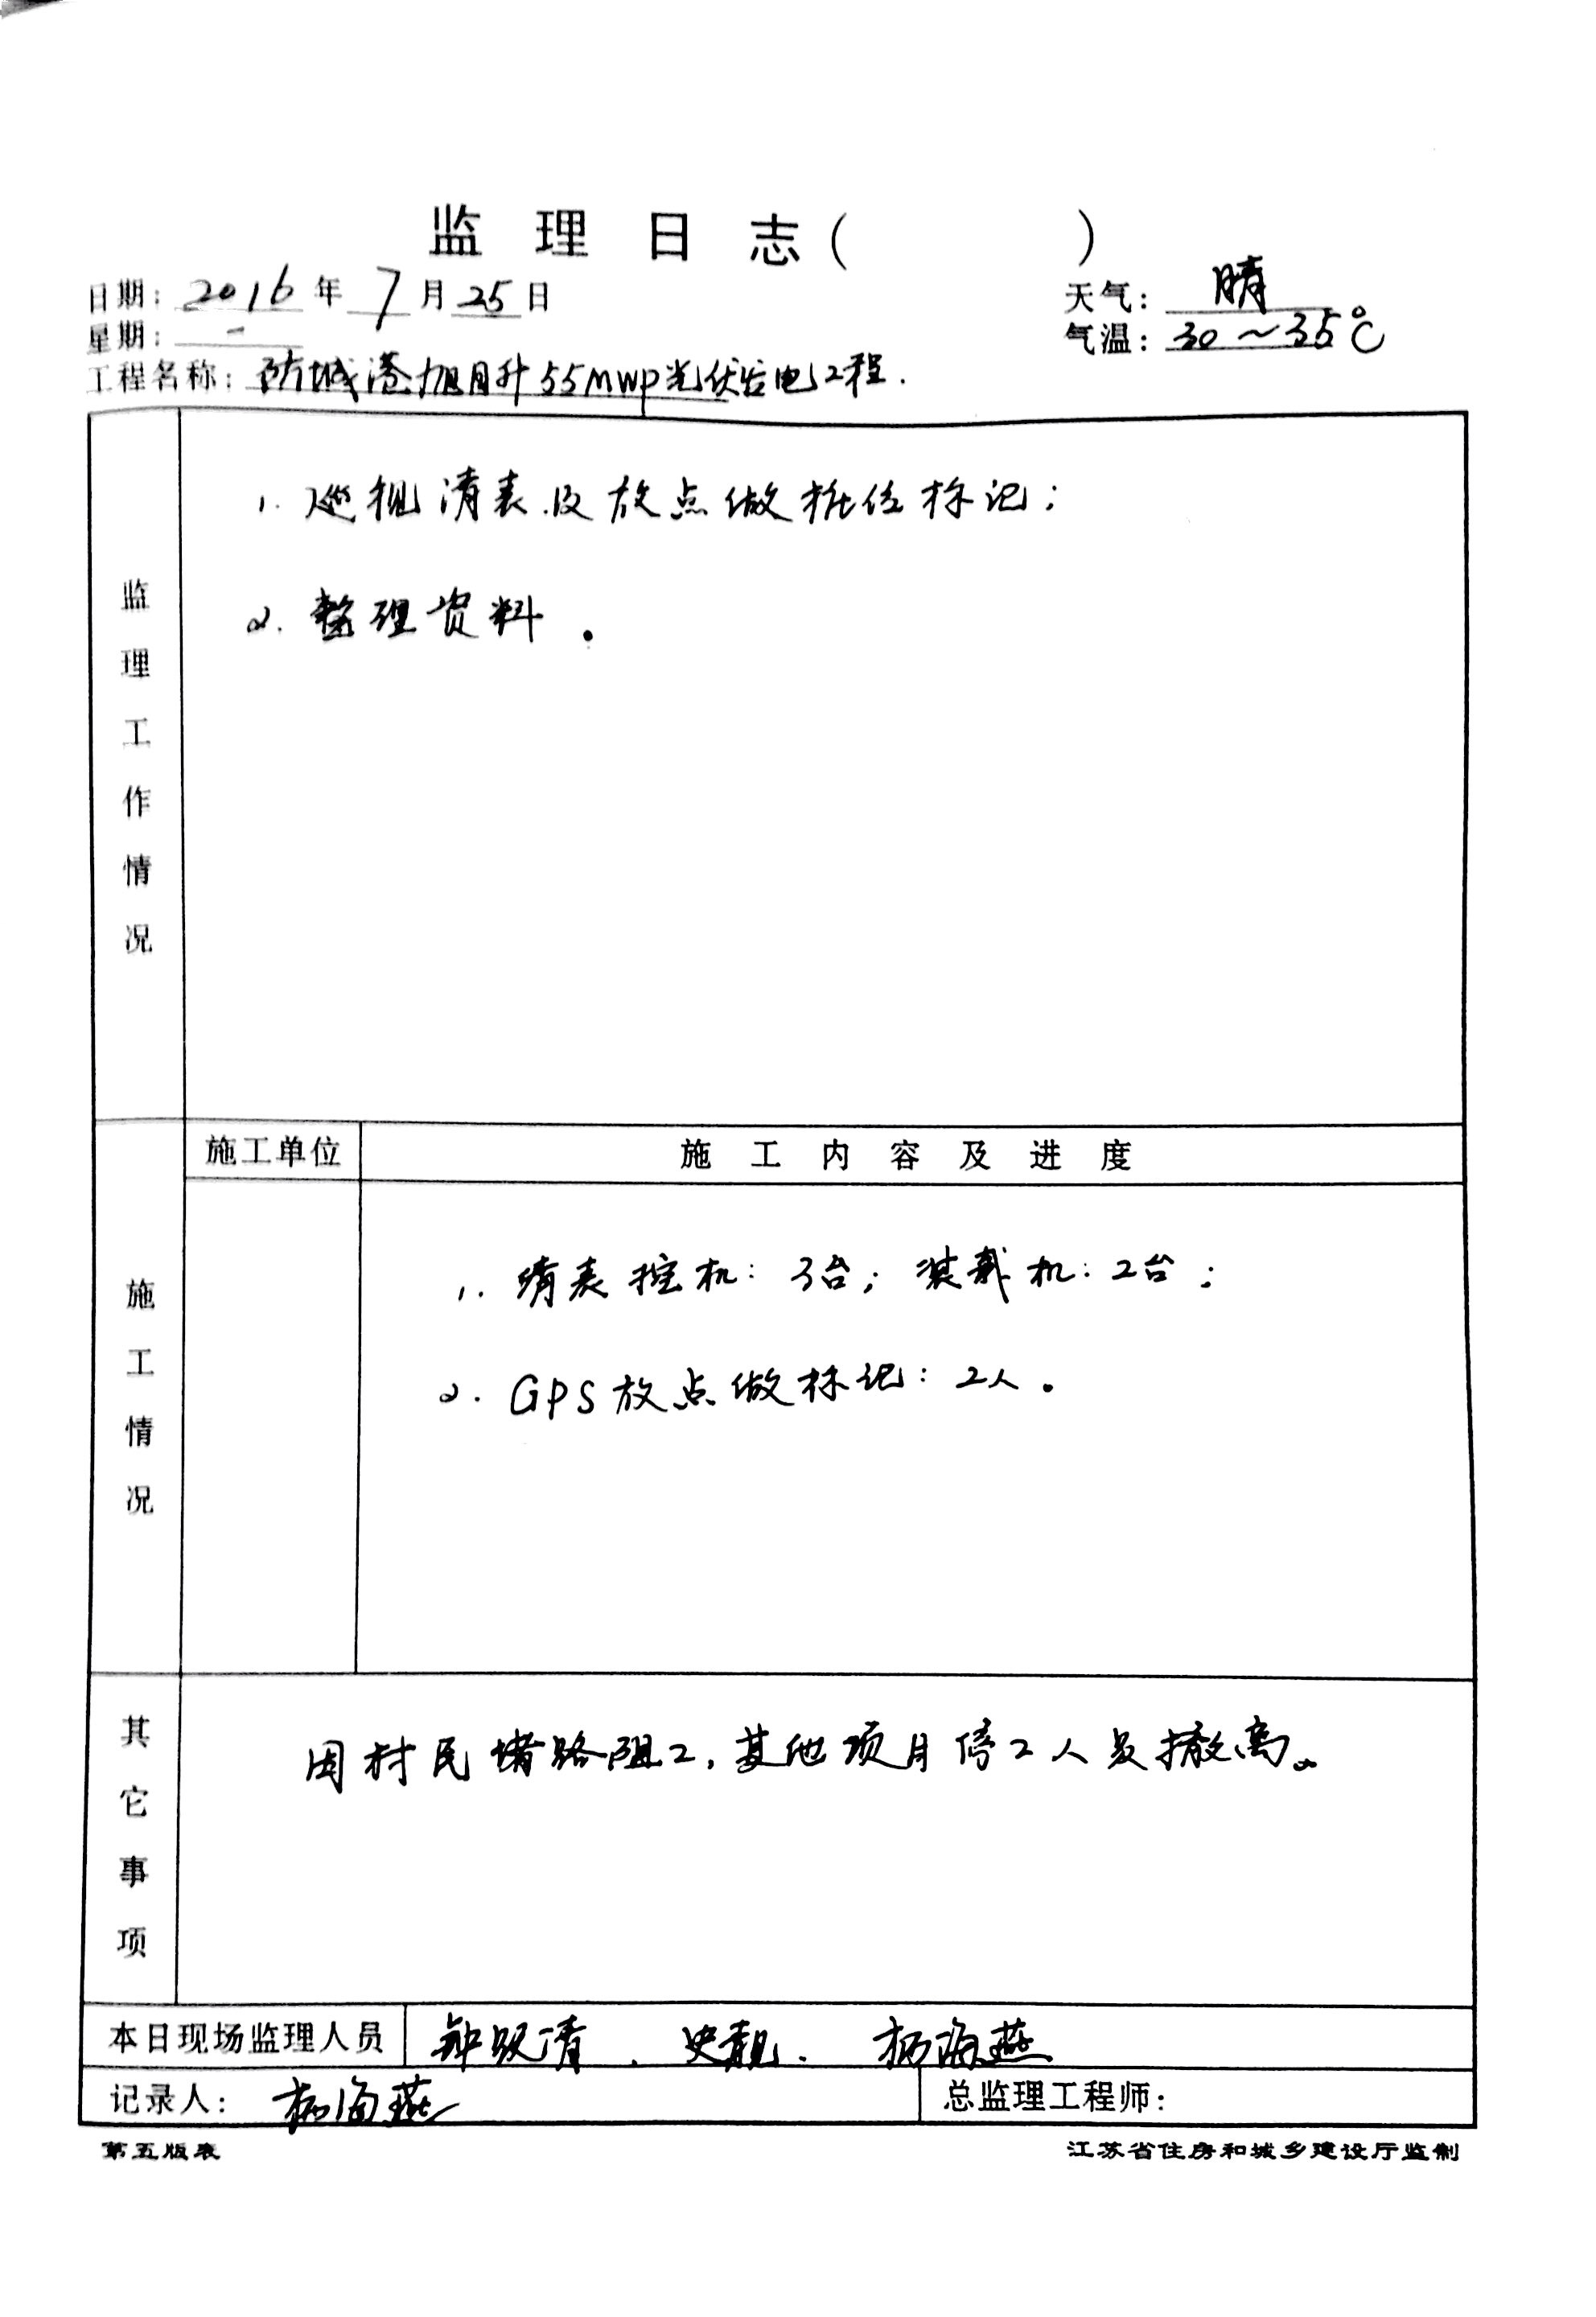 监理日志（ ）
日期：2016年7月25日 天气：晴
星期：一 气温：30～35℃
工程名称：防城港旭日升55MWp光伏发电工程.
监理工作情况
1. 巡视清表及放点做桩位标记；
2. 整理资料。
施工单位 施工内容及进度
施工情况
1. 清表挖机：3台；装载机：2台；
2. GPS放点做标记：2人。
其它事项
因村民堵路阻工，其他项目停工人员撤离。
本日现场监理人员 钟 清、史靓. 杨海燕
记录人：杨海燕 总监理工程师：
第五版表 江苏省住房和城乡建设厅监制